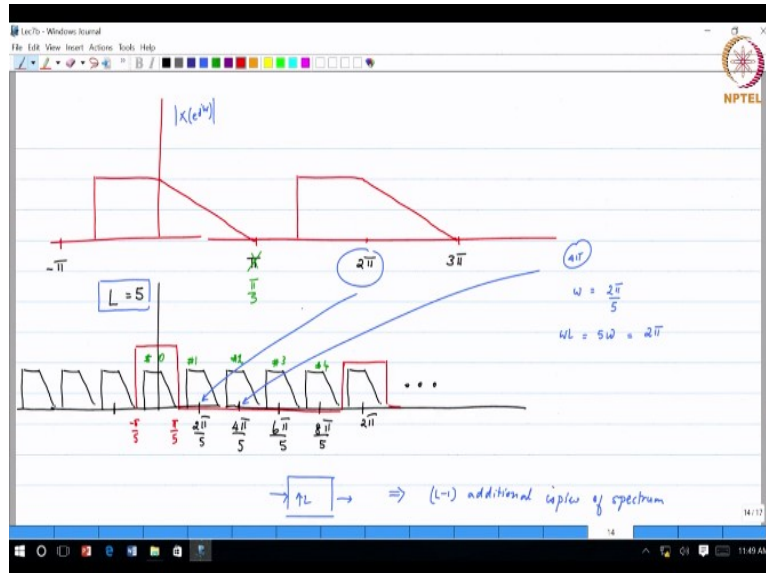 Lec7b - Windows Journal
File Edit View Insert Actions Tools Help
NPTEL
|X(e^jω)|
-π
π
π/3
2π
3π
4π
L = 5
ω = 2π/5
ωL = 5ω = 2π
#0 #1 #2 #3 #4
-π/5 π/5 2π/5 4π/5 6π/5 8π/5 2π
↑L ⇒ (L-1) additional copies of spectrum
14/17
14
11:49 AM